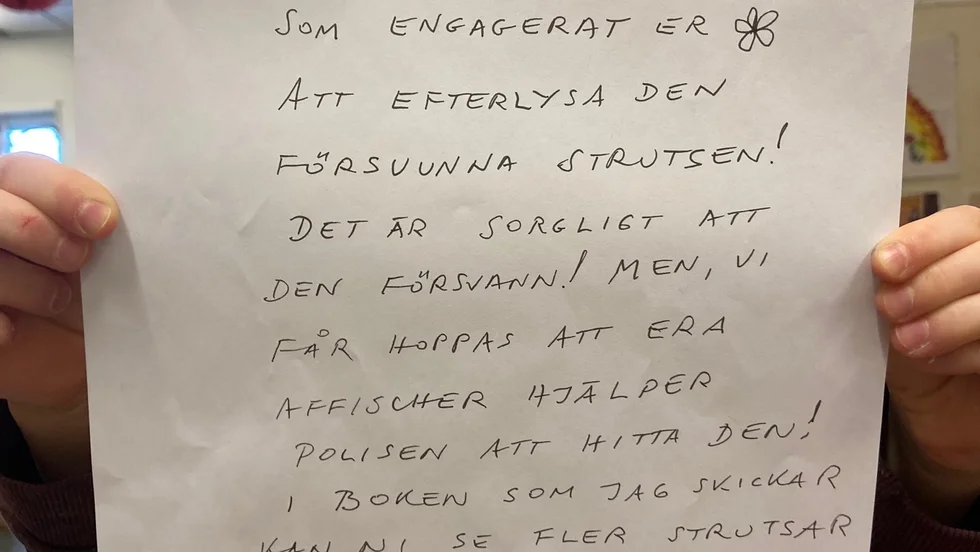 SOM ENGAGERAT ER
ATT EFTERLYSA DEN
FÖRSVUNNA STRUTSEN!
DET ÄR SORGLIGT ATT
DEN FÖRSVANN! MEN, VI
FÅR HOPPAS ATT ERA
AFFISCHER HJÄLPER
POLISEN ATT HITTA DEN!
I BOKEN SOM JAG SKICKAR
KAN NI SE FLER STRUTSAR